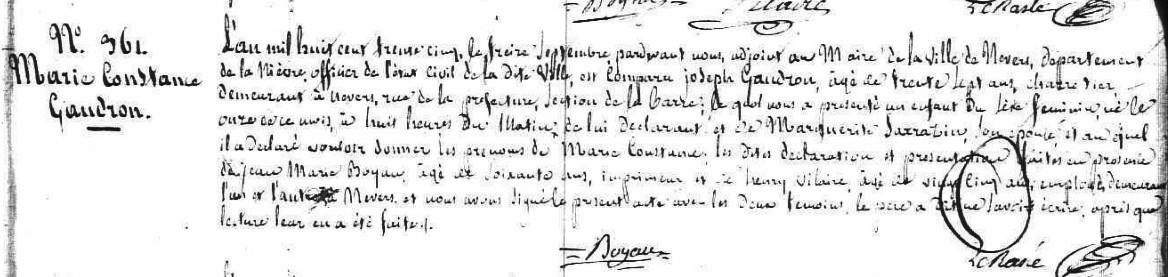 N.º 361.
Marie Constance
Gaudron.
L'an mil huit cent trente cinq, le treize Septembre, pardevant nous, adjoint au Maire de la Ville de Nevers, département
de la Nièvre, officier de l'état Civil de la dite Ville, est Comparu joseph Gaudron, âgé de trente sept ans, charretier,
demeurant à Nevers, rue de la préfecture, Section de la Barre; le quel nous a présenté un enfant du sexe féminin, né le
onze de ce mois, à huit heures du Matin, de lui déclarant et de Marguerite Sarrazin, son épouse, et au quel
il a déclaré vouloir donner les prénoms de Marie Constance, les dites déclaration et présentation faites en présence
de jean Marie Boyau, âgé de soixante ans, imprimeur et de henry Vilaire, âgé de vingt cinq ans, employé, demeurant
l'un et l'autre Nevers, et nous avons Signé le présent acte avec les deux témoins, le père a dit ne savoir écrire, après que
lecture leur en a été faite.
Boyau